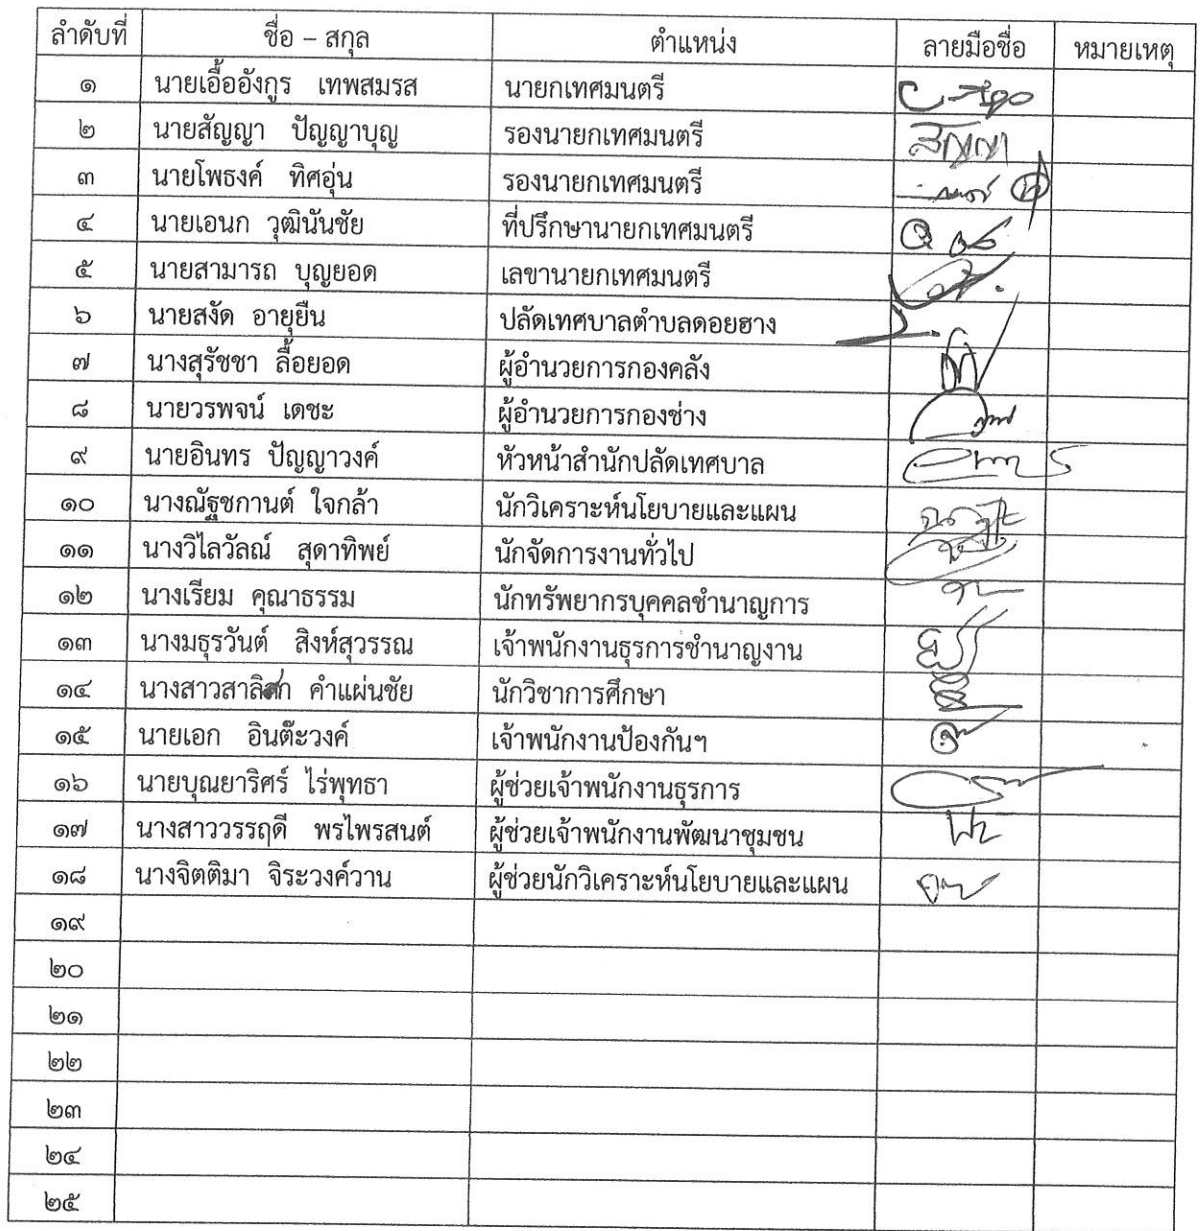 ลำดับที่ ชื่อ – สกุล ตำแหน่ง ลายมือชื่อ หมายเหตุ
๑ นายเอื้ออังกูร เทพสมรส นายกเทศมนตรี
๒ นายสัญญา ปัญญาบุญ รองนายกเทศมนตรี สัญญา
๓ นายโพธงค์ ทิศอุ่น รองนายกเทศมนตรี
๔ นายเอนก วุฒินันชัย ที่ปรึกษานายกเทศมนตรี
๕ นายสามารถ บุญยอด เลขานายกเทศมนตรี
๖ นายสงัด อายุยืน ปลัดเทศบาลตำบลดอยฮาง
๗ นางสุรัชชา ลื้อยอด ผู้อำนวยการกองคลัง
๘ นายวรพจน์ เดชะ ผู้อำนวยการกองช่าง
๙ นายอินทร ปัญญาวงค์ หัวหน้าสำนักปลัดเทศบาล
๑๐ นางณัฐชกานต์ ใจกล้า นักวิเคราะห์นโยบายและแผน
๑๑ นางวิไลวัลณ์ สุดาทิพย์ นักจัดการงานทั่วไป
๑๒ นางเรียม คุณาธรรม นักทรัพยากรบุคคลชำนาญการ
๑๓ นางมธุรวันต์ สิงห์สุวรรณ เจ้าพนักงานธุรการชำนาญงาน
๑๔ นางสาวสาลิศา คำแผ่นชัย นักวิชาการศึกษา
๑๕ นายเอก อินต๊ะวงค์ เจ้าพนักงานป้องกันฯ
๑๖ นายบุณยาริศร์ ไร่พุทธา ผู้ช่วยเจ้าพนักงานธุรการ
๑๗ นางสาววรรฤดี พรไพรสนต์ ผู้ช่วยเจ้าพนักงานพัฒนาชุมชน
๑๘ นางจิตติมา จิระวงค์วาน ผู้ช่วยนักวิเคราะห์นโยบายและแผน
๑๙
๒๐
๒๑
๒๒
๒๓
๒๔
๒๕